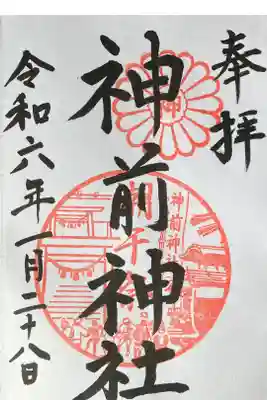 奉拝
神前神社
令和六年一月二十八日
神
神前神社